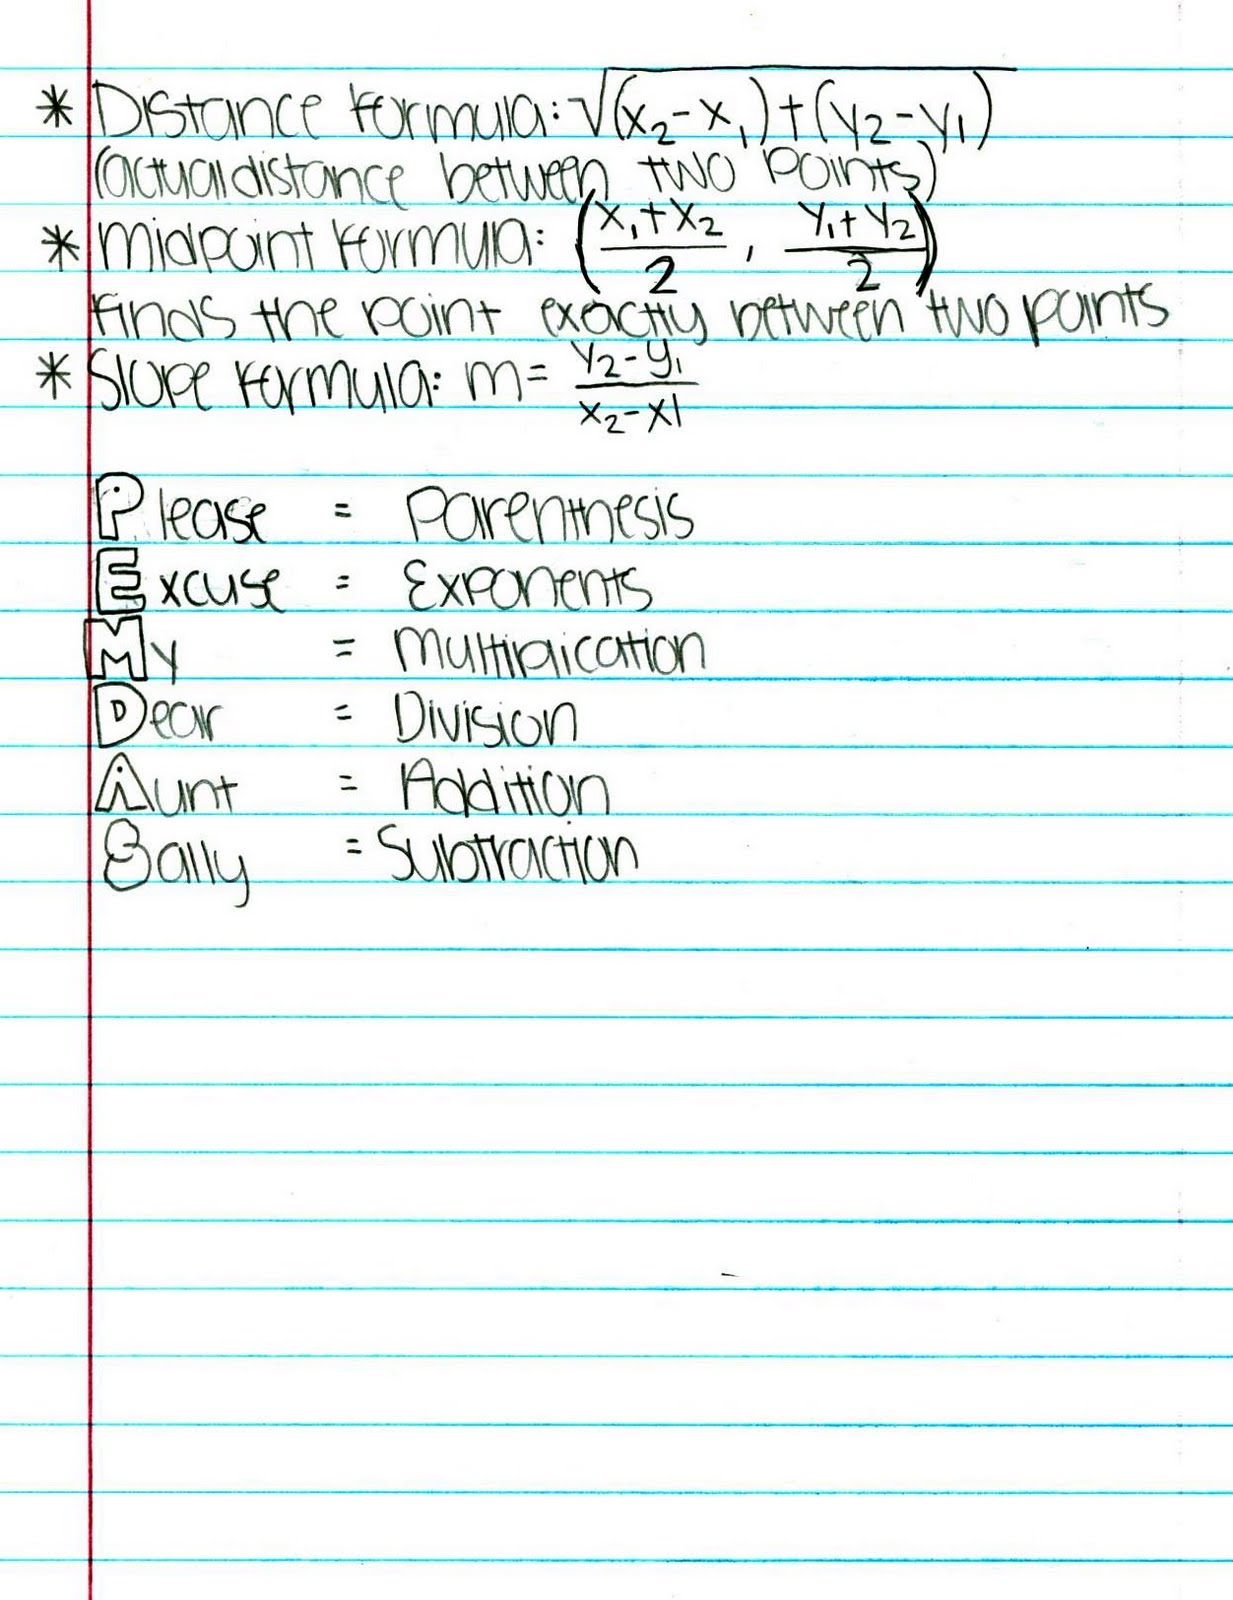 * Distance formula: √(x₂-x₁)+(y₂-y₁)
(actual distance between two points)
* midpoint formula: (x₁+x₂/2, y₁+y₂/2)
finds the point exactly between two points
* Slope formula: m= y₂-y₁/x₂-x1
Please = Parenthesis
Excuse = Exponents
My = multiplication
Dear = Division
Aunt = Addition
Sally = Subtraction